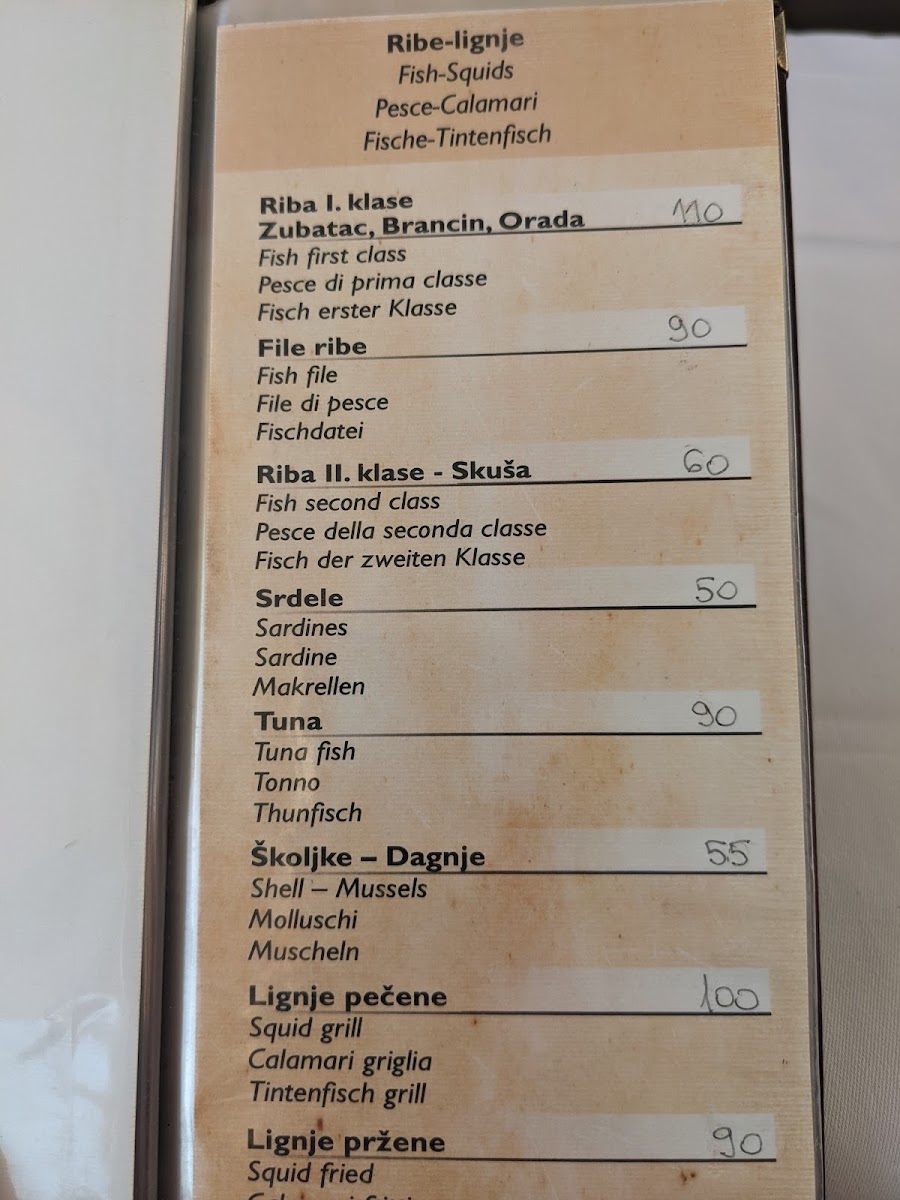 Ribe-lignje
Fish-Squids
Pesce-Calamari
Fische-Tintenfisch
Riba I. klase
Zubatac, Brancin, Orada 110
Fish first class
Pesce di prima classe
Fisch erster Klasse
File ribe 90
Fish file
File di pesce
Fischdatei
Riba II. klase - Skuša 60
Fish second class
Pesce della seconda classe
Fisch der zweiten Klasse
Srdele 50
Sardines
Sardine
Makrellen
Tuna 90
Tuna fish
Tonno
Thunfisch
Školjke – Dagnje 55
Shell – Mussels
Molluschi
Muscheln
Lignje pečene 100
Squid grill
Calamari griglia
Tintenfisch grill
Lignje pržene 90
Squid fried